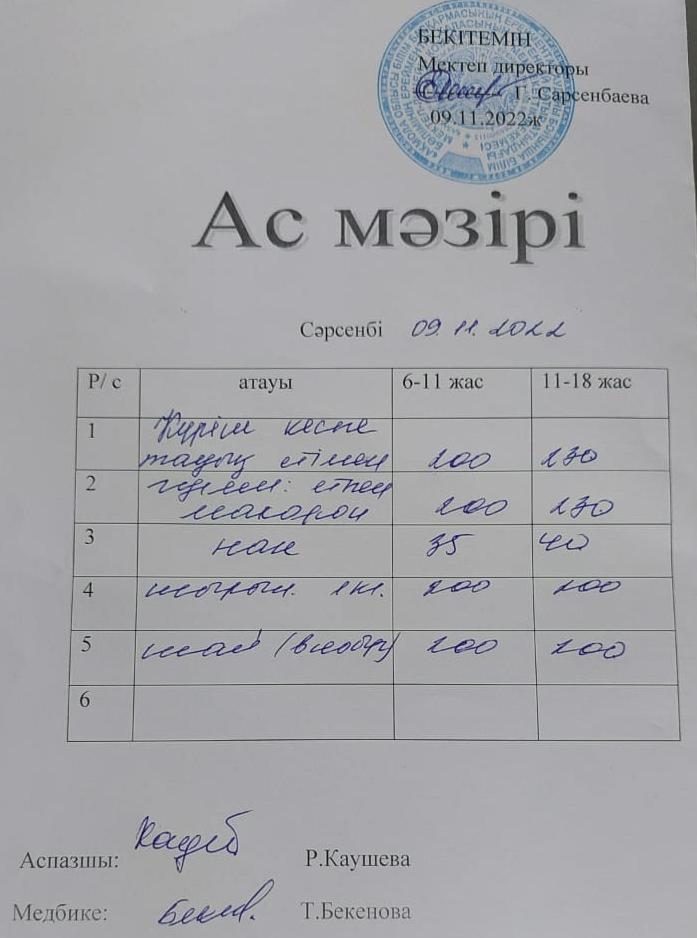 БЕКІТЕМІН
Мектеп директоры
Г. Сарсенбаева
09.11.2022ж
Ас мәзірі
Сәрсенбі 09.11.2022
Р/с атауы 6-11 жас 11-18 жас
1 Күріш кеспе
тауық етімен 200 230
2 етпен
макарон 200 230
3 нан 35 40
4 шырын 200 200
5 шай 200 200
6
Аспазшы: Р.Каушева
Медбике: Т.Бекенова